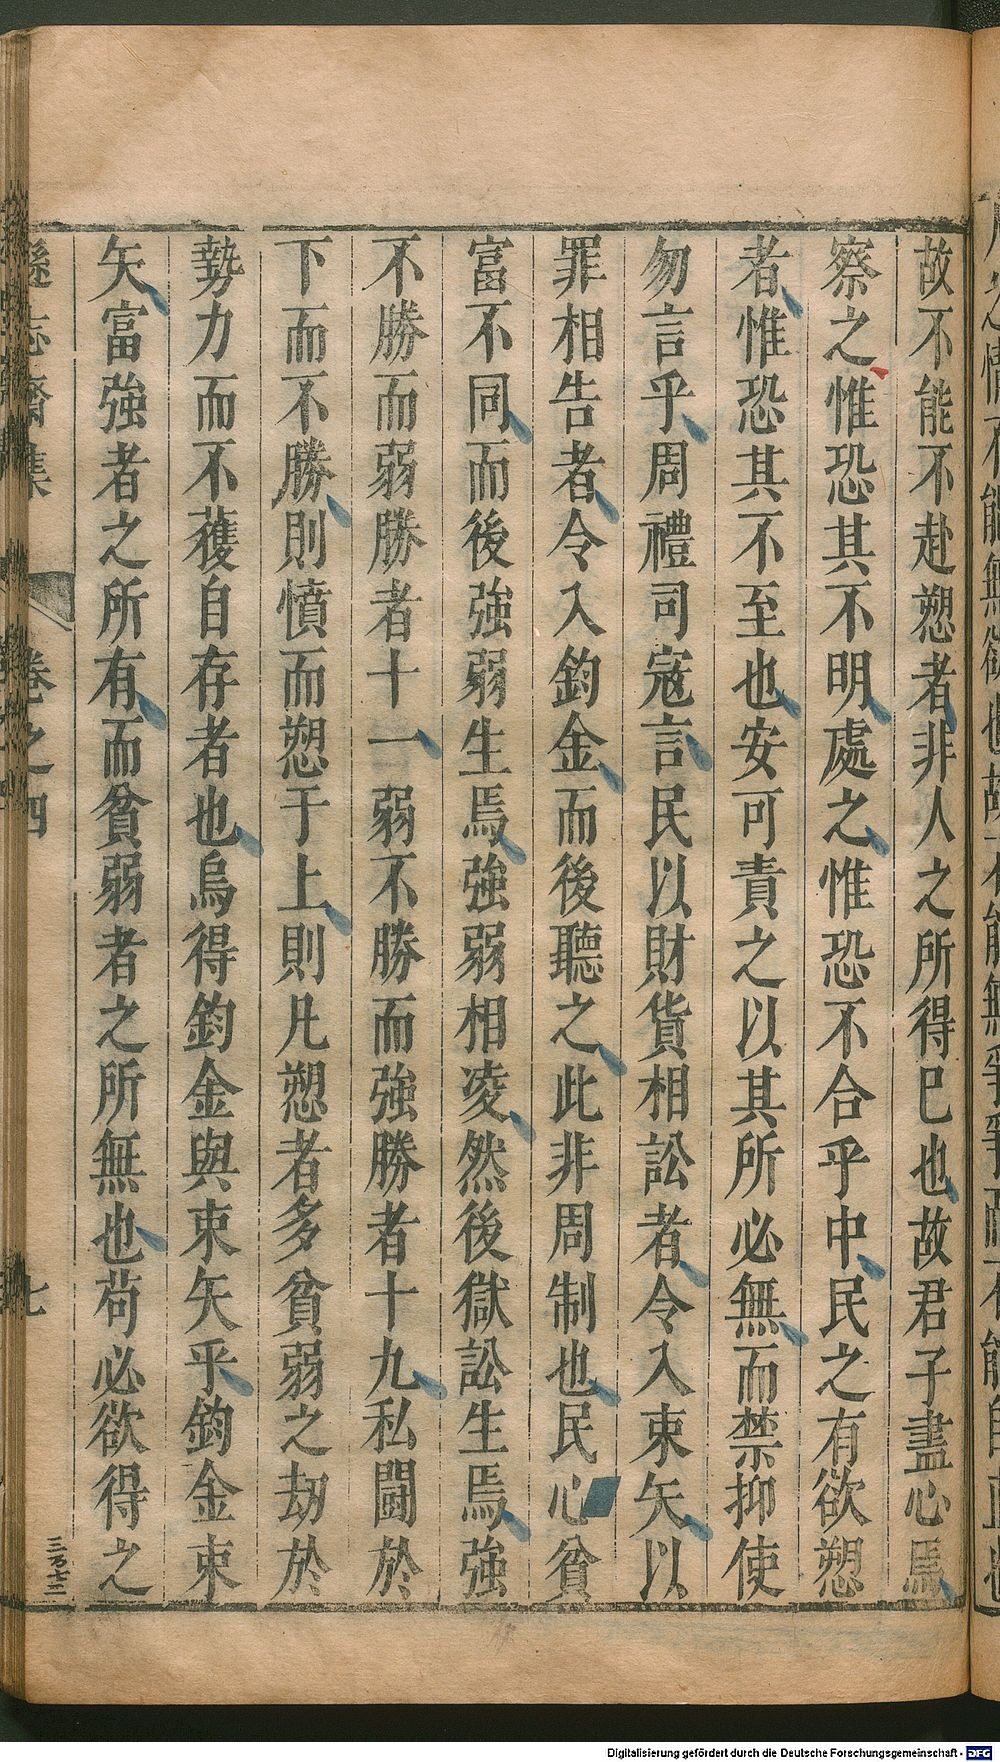 故不能不赴愬者非人之所得巳也故君子盡心焉
察之惟恐其不明處之惟恐不合乎中民之有欲愬
者惟恐其不至也安可責之以其所必無而禁抑使
勿言乎周禮司寇言民以財貨相訟者令入束矢以
罪相告者令入鈞金而後聽之此非周制也民心貧
富不同而後強弱生焉強弱相凌然後獄訟生焉強
不勝而弱勝者十一弱不勝而強勝者十九私鬪於
下而不勝則憤而愬于上則凡愬者多貧弱之劫於
勢力而不獲自存者也烏得鈞金與束矢乎鈞金束
矢富強者之所有而貧弱者之所無也苟必欲得之
遜志齋集 卷之四 七
三百七二
Digitalisierung gefördert durch die Deutsche Forschungsgemeinschaft - DFG